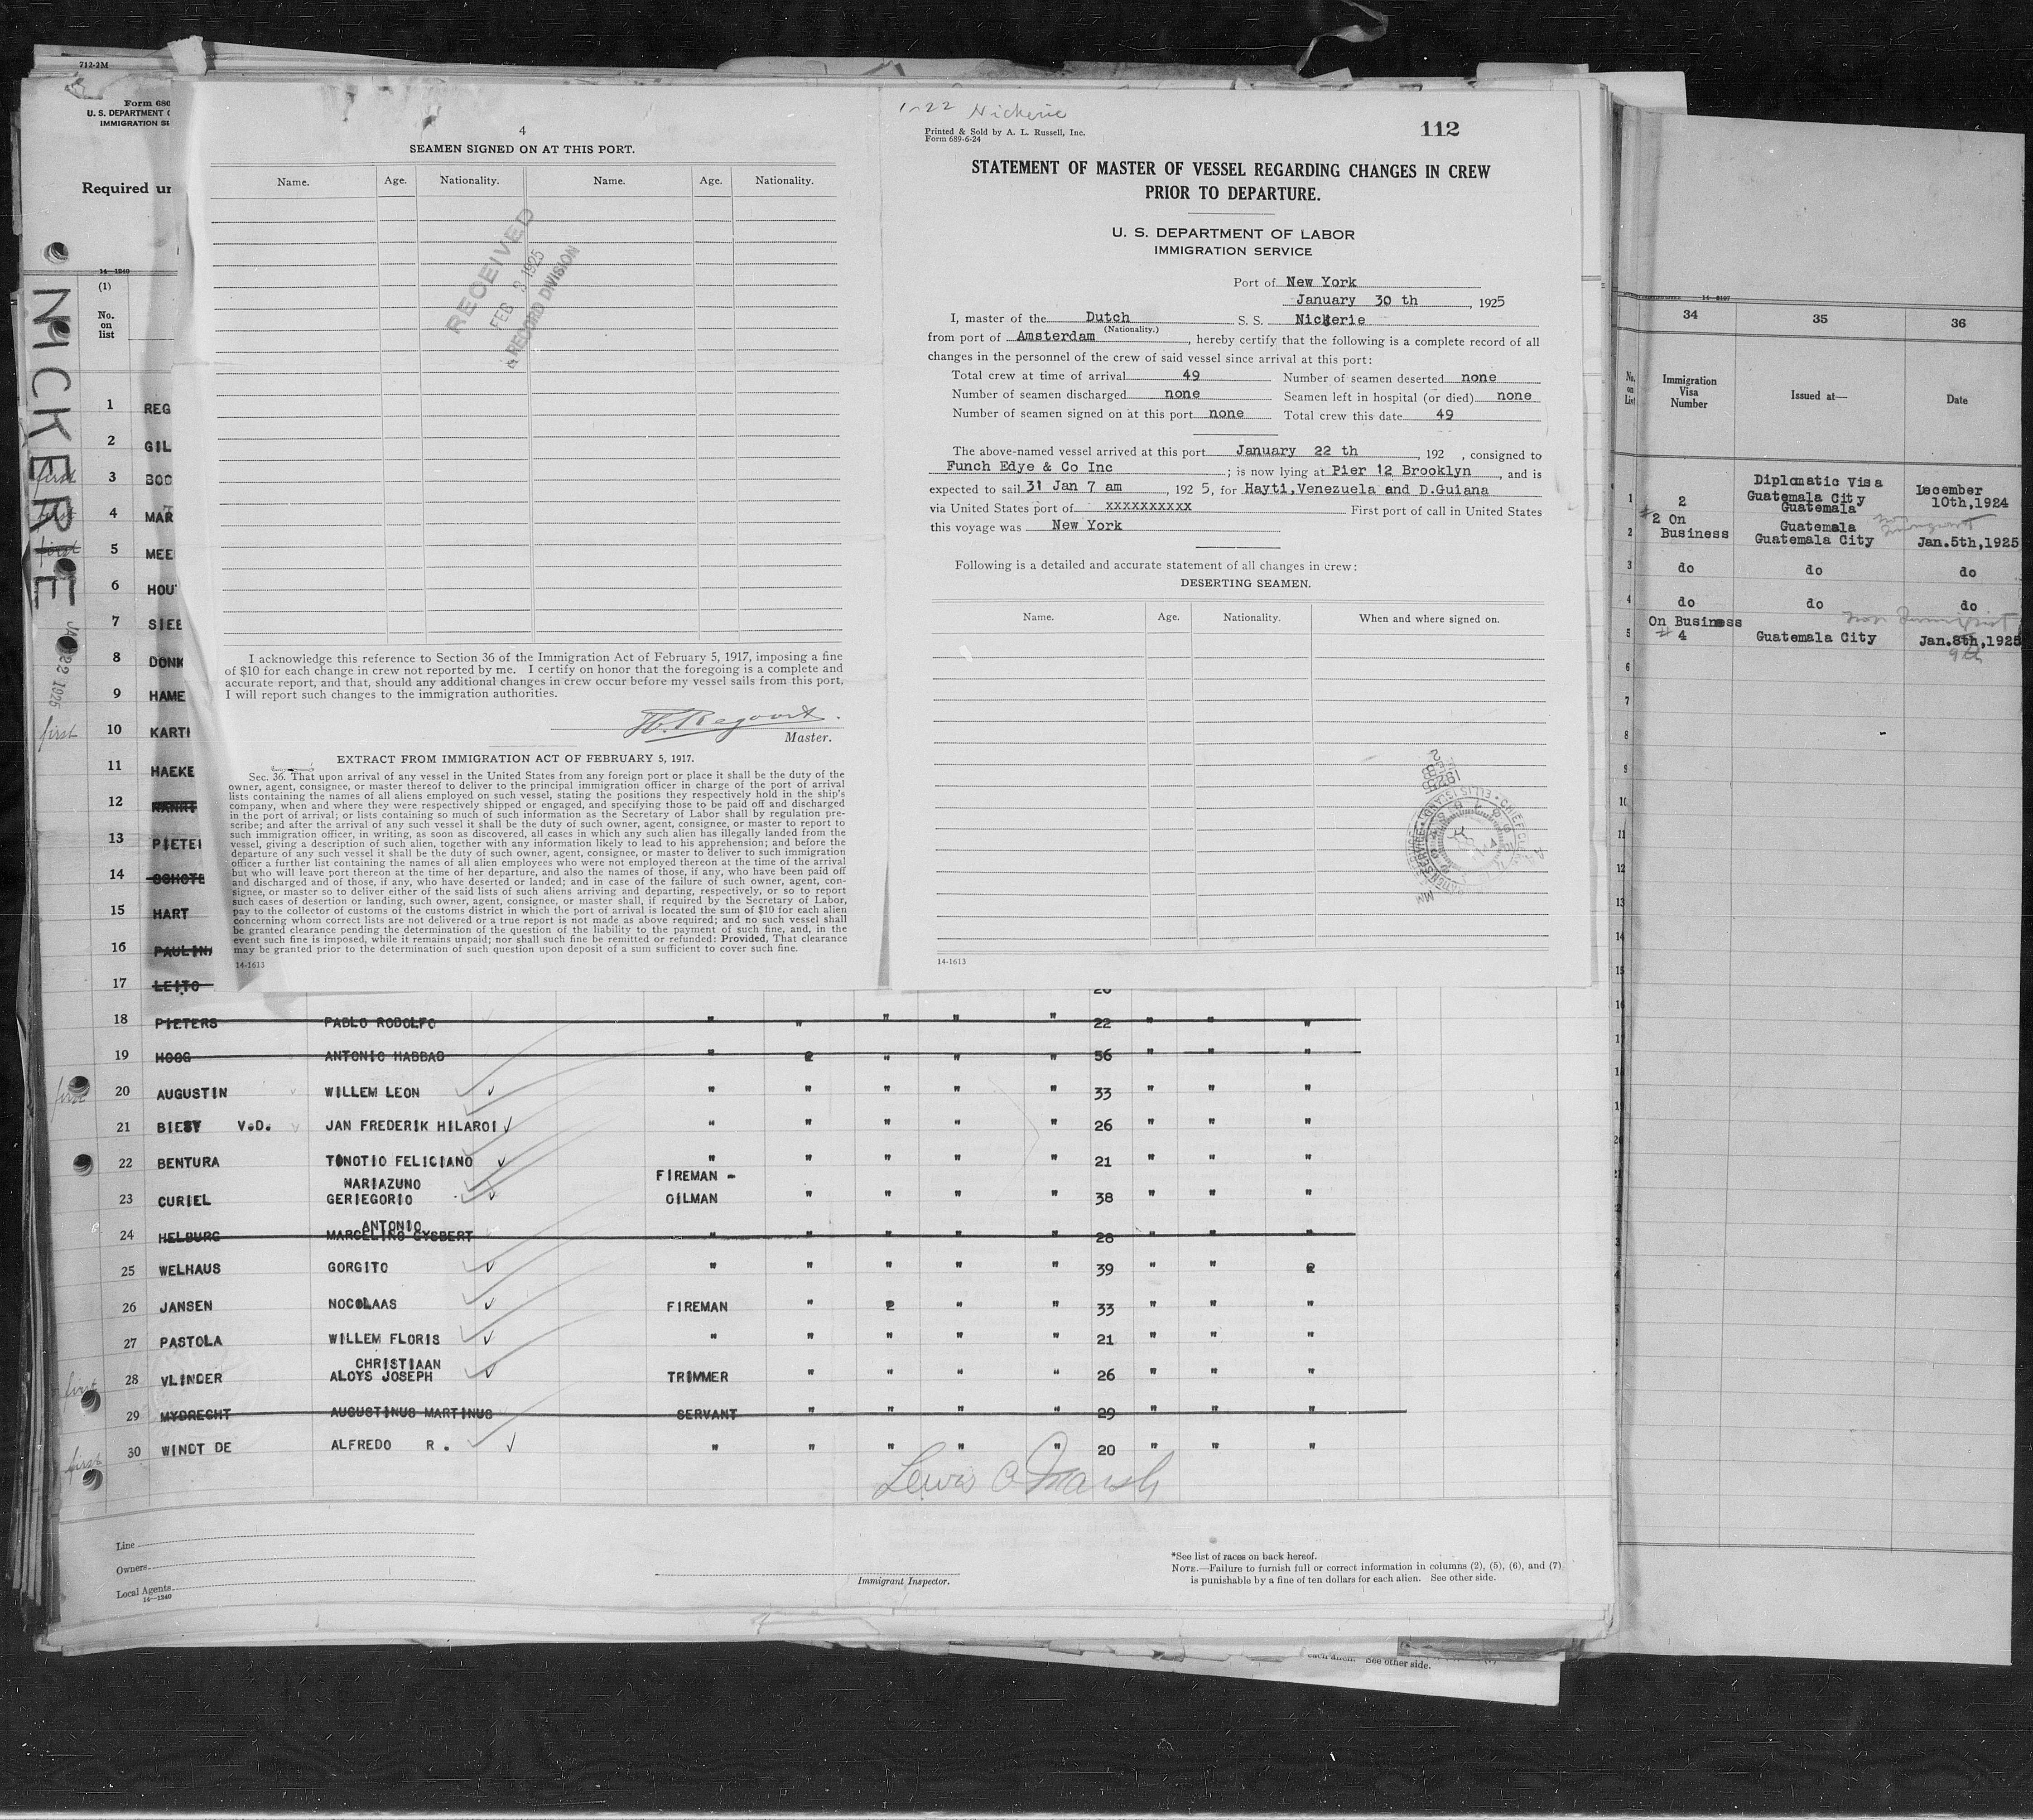 712-2M
Form 680
U. S. DEPARTMENT O
IMMIGRATION SE
Required un
14—1240
(1)
No.
on
list
NICKERIE
JAN 22 1925
1 REG
2 GIL
first 3 BOO
first 4 MAR
first 5 MEE
6 HOU
7 SIEE
8 DONK
9 HAME
first 10 KARTI
11 HAEKE
12
13 PIETE
14 SCHOTE
15 HART
16 PAULIN
17 LEITO
4
SEAMEN SIGNED ON AT THIS PORT.
Name. Age. Nationality. Name. Age. Nationality.
RECEIVED
FEB 3 1925
RECORD DIVISION
I acknowledge this reference to Section 36 of the Immigration Act of February 5, 1917, imposing a fine
of $10 for each change in crew not reported by me. I certify on honor that the foregoing is a complete and
accurate report, and that, should any additional changes in crew occur before my vessel sails from this port,
I will report such changes to the immigration authorities.
Master.
EXTRACT FROM IMMIGRATION ACT OF FEBRUARY 5, 1917.
Sec. 36. That upon arrival of any vessel in the United States from any foreign port or place it shall be the duty of the
owner, agent, consignee, or master thereof to deliver to the principal immigration officer in charge of the port of arrival
lists containing the names of all aliens employed on such vessel, stating the positions they respectively hold in the ship's
company, when and where they were respectively shipped or engaged, and specifying those to be paid off and discharged
in the port of arrival; or lists containing so much of such information as the Secretary of Labor shall by regulation pre-
scribe; and after the arrival of any such vessel it shall be the duty of such owner, agent, consignee, or master to report to
such immigration officer, in writing, as soon as discovered, all cases in which any such alien has illegally landed from the
vessel, giving a description of such alien, together with any information likely to lead to his apprehension; and before the
departure of any such vessel it shall be the duty of such owner, agent, consignee, or master to deliver to such immigration
officer a further list containing the names of all alien employees who were not employed thereon at the time of the arrival
but who will leave port thereon at the time of her departure, and also the names of those, if any, who have been paid off
and discharged and of those, if any, who have deserted or landed; and in case of the failure of such owner, agent, con-
signee, or master so to deliver either of the said lists of such aliens arriving and departing, respectively, or so to report
such cases of desertion or landing, such owner, agent, consignee, or master shall, if required by the Secretary of Labor,
pay to the collector of customs of the customs district in which the port of arrival is located the sum of $10 for each alien
concerning whom correct lists are not delivered or a true report is not made as above required; and no such vessel shall
be granted clearance pending the determination of the question of the liability to the payment of such fine, and, in the
event such fine is imposed, while it remains unpaid; nor shall such fine be remitted or refunded: Provided, That clearance
may be granted prior to the determination of such question upon deposit of a sum sufficient to cover such fine.
14-1613
1-22 Nickerie
Printed & Sold by A. L. Russell, Inc.
Form 689-6-24
112
STATEMENT OF MASTER OF VESSEL REGARDING CHANGES IN CREW
PRIOR TO DEPARTURE.
U. S. DEPARTMENT OF LABOR
IMMIGRATION SERVICE
Port of New York
January 30 th, 1925
I, master of the Dutch S. S. Nickerie
(Nationality.)
from port of Amsterdam, hereby certify that the following is a complete record of all
changes in the personnel of the crew of said vessel since arrival at this port:
Total crew at time of arrival 49 Number of seamen deserted none
Number of seamen discharged none Seamen left in hospital (or died) none
Number of seamen signed on at this port none Total crew this date 49
The above-named vessel arrived at this port January 22 th, 192 , consigned to
Funch Edye & Co Inc; is now lying at Pier 12 Brooklyn, and is
expected to sail 31 Jan 7 am, 192 5, for Hayti,Venezuela and D.Guiana
via United States port of xxxxxxxxxx First port of call in United States
this voyage was New York
Following is a detailed and accurate statement of all changes in crew:
DESERTING SEAMEN.
Name. Age. Nationality. When and where signed on.
14-1613
18 PIETERS PABLO RODOLFO " " " " " 22 " " "
19 HOOG ANTONIO HABBAO " 2 " " " 56 " " "
first 20 AUGUSTIN WILLEM LEON " " " " " 33 " " "
21 BIESY V.D. JAN FREDERIK HILAROI " " " " " 26 " " "
22 BENTURA TONOTIO FELICIANO " " " " " 21 " " "
NARIAZUNO FIREMAN -
23 CURIEL GERIEGORIO OILMAN " " " " 38 " " "
ANTONIO
24 HELBURG MARCELINO GYSBERT " " " " " 28 " " "
25 WELHAUS GORGITO " " " " " 39 " " 2
26 JANSEN NOCOLAAS FIREMAN " 2 " " 33 " " "
27 PASTOLA WILLEM FLORIS " " " " " 21 " " "
CHRISTIAAN
first 28 VLINDER ALOYS JOSEPH TRIMMER " " " " 26 " " "
29 MYDRECHT AUGUSTINUS MARTINUS SERVANT " " " " 29 " " "
first 30 WINDT DE ALFREDO R. " " " " " 20 " " "
Lewis C Marsh
Line
Owners
Local Agents
14—1240
Immigrant Inspector.
*See list of races on back hereof.
NOTE.—Failure to furnish full or correct information in columns (2), (5), (6), and (7)
is punishable by a fine of ten dollars for each alien. See other side.
each alien. See other side.
14—2107
34 35 36
No. on List Immigration Visa Number Issued at— Date
Diplomatic Visa
1 2 Guatemala City December
Guatemala 10th,1924
#2 On Guatemala
2 Business Guatemala City Jan.5th,1925
3 do do do
4 do do do
On Business
5 #4 Guatemala City Jan.8th,1925
9th
6
7
8
9
10
11
12
13
14
15